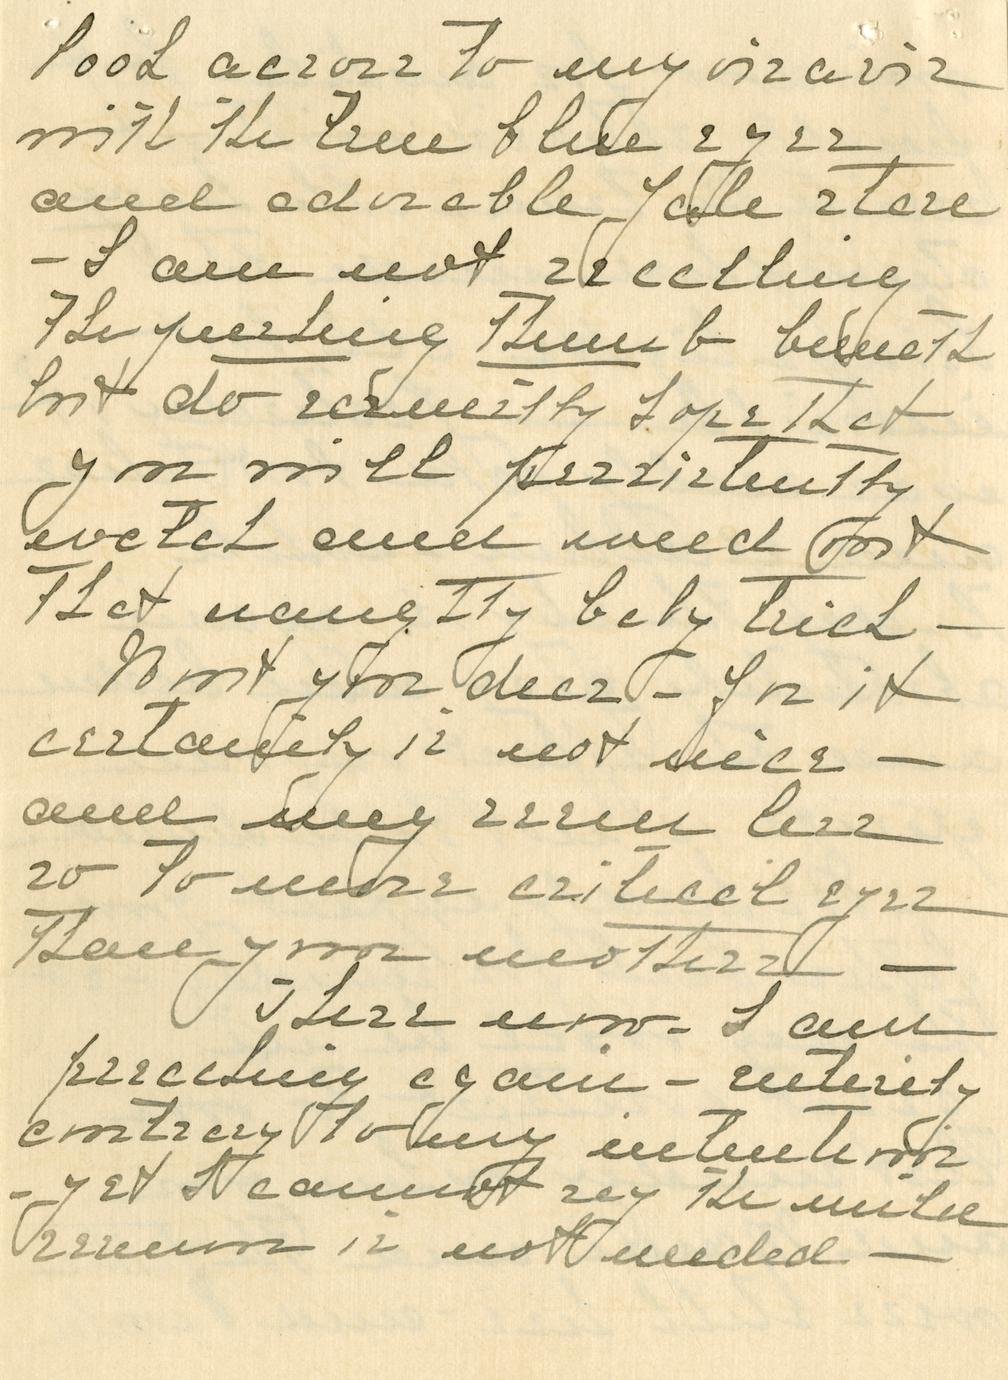 look across to my vis a vis
with the true blue eyes
and adorable Yale stare
- I am not recalling
the pushing thumb beneath
but do earnestly hope that
you will persistently
watch and weed out
that naughty baby trick -
Wont you dear - for it
certainly is not nice -
and may seem less
so to more critical eyes
than your mothers -
There now - I am
preaching again - entirely
contrary to my intention
- yet I cannot say the milu
sermon is not needed -